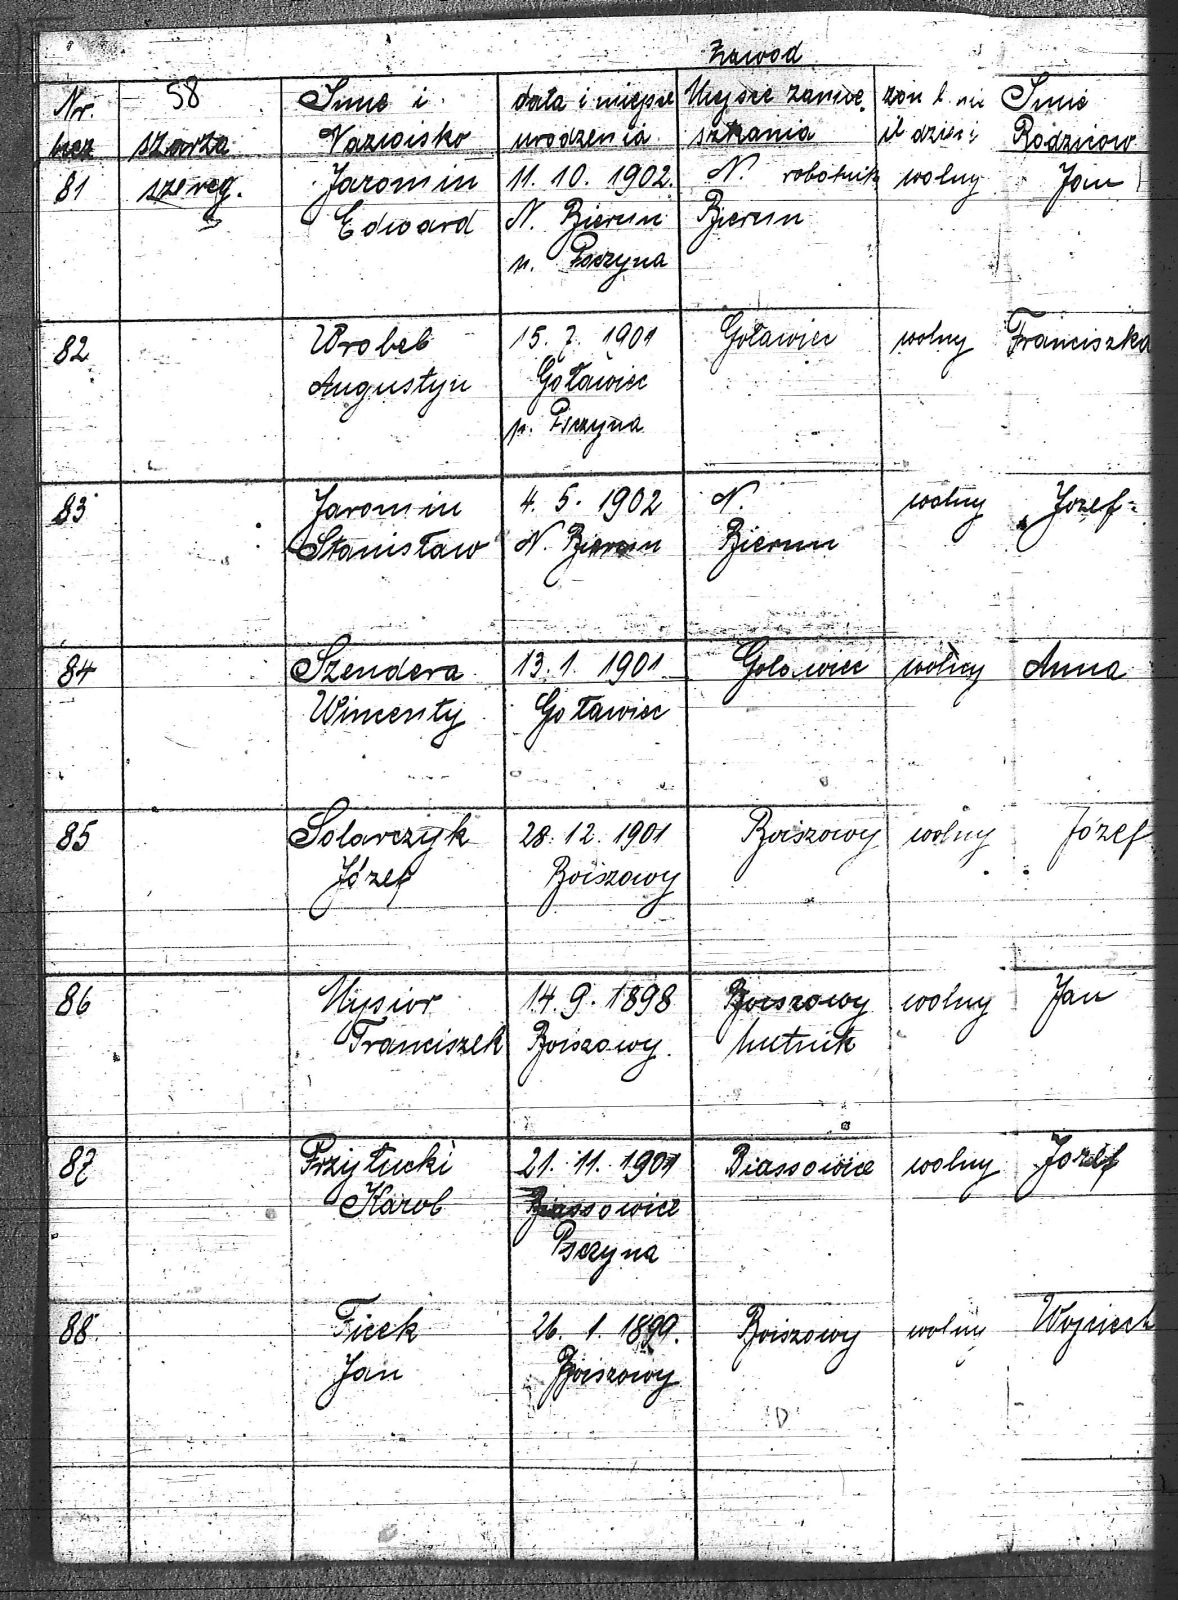 Zawod
Nr. 58 Imie i data i miejsce Miejsce zamie żon l. nie Imie
bież szarża Nazwisko urodzenia szkania il dzieci Rodziców
81 szereg. Jaromin 11. 10. 1902. N. robotnik wolny Jan
Edward N. Bierun Bierun
p. Pszczyna
82 Wrobel 15. 7. 1901 Goławiec wolny Franciszka
Augustyn Goławiec
p. Pszczyna
83 Jaromin 4. 5. 1902 N. wolny Jozef
Stanisław N. Bierun Bierun
84 Szendera 13. 1. 1901 Golawiec wolny Anna
Wincenty Goławiec
85 Solarczyk 28. 12. 1901 Boiszowy wolny Józef
Józef Boiszowy
86 Mysior 14. 9. 1898 Boiszowy wolny Jan
Franciszek Boiszowy. hutnik
87 Przyłucki 21. 11. 1901 Biassowice wolny Józef
Karol Biassowice
Psczyna
88. Ficek 26. 1. 1899. Boiszowy wolny Wojciech
Jan Boiszowy